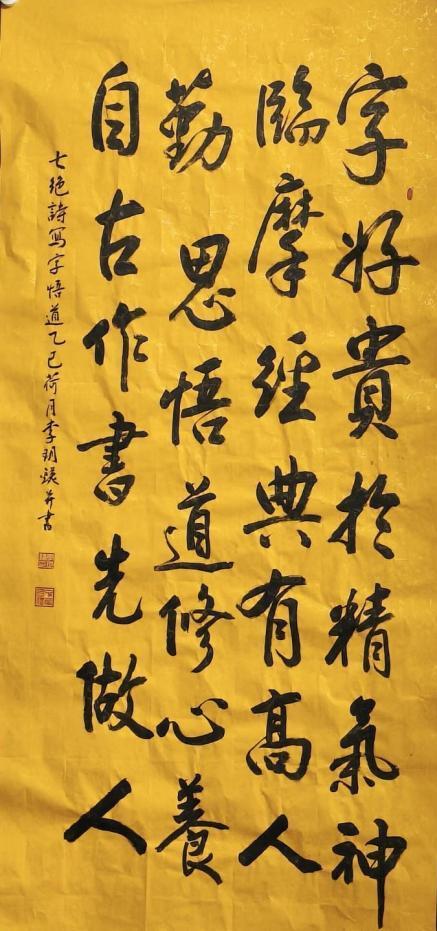 字好貴於精氣神
臨摩經典有高人
勤思悟道修心養
自古作書先做人
七絕詩寫字悟道乙巳荷月李玥
并書